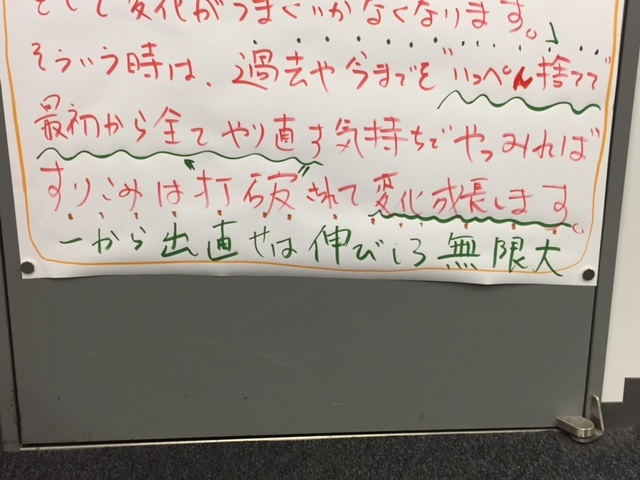 そして変化がうまくいかなくなります。」
そういう時は、過去や今までを"いっぺん捨てて"
最初から全てやり直す気持ちでやってみれば
すりこみは打破されて変化成長します。
一から出直せば伸びしろ無限大